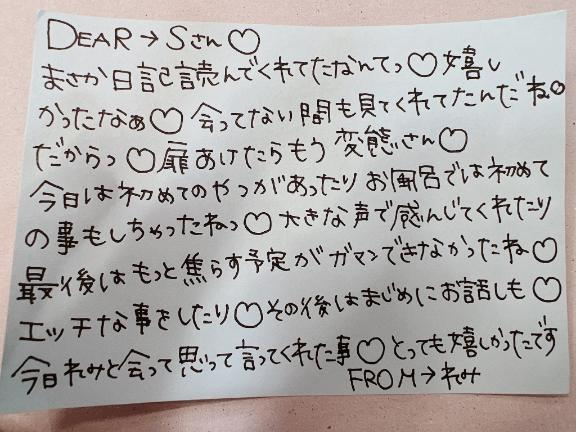 DEAR→Sさん♡
まさか日記読んでくれてたなんてっ♡嬉し
かったなぁ♡会ってない間も見てくれてたんだね♡
だからっ♡扉あけたらもう変態さん♡
今日は初めてのやつがあったりお風呂では初めて
の事もしちゃったねっ♡大きな声で感んじてくれたり
最後はもっと焦らす予定がガマンできなかったね♡
エッチな事をしたり♡その後はまじめにお話しも♡
今日れみと会って思って言ってくれた事♡とっても嬉しかったです
FROM→れみ